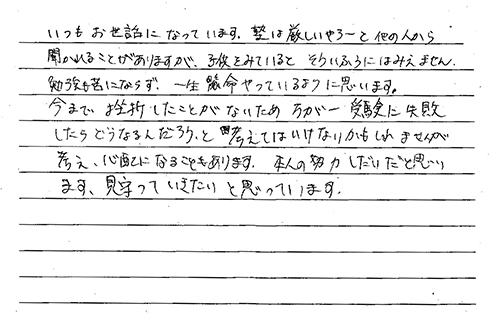 いつもお世話になっています。塾は厳しいやろーと他の人から
聞かれることがありますが、子供をみていると そういうふうにはみえません。
勉強も苦にならず、一生懸命やっているように思います。
今まで挫折したことがないため 万が一 受験に失敗
したらどうなるんだろう、と 考えてはいけないかもしれませんが
考え、心配になることもあります。本人の努力しだいだと思い
ます、見守っていきたいと思っています。